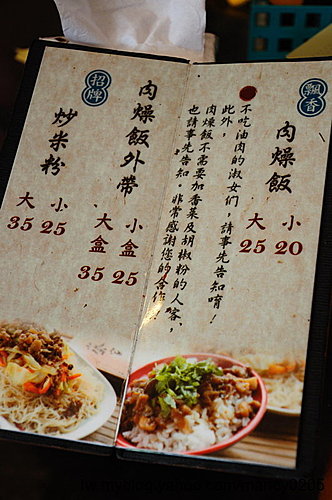 飄香
肉燥飯
大 小
25 20
不吃油肉的淑女們，請事先告知唷！
此外，
肉燥飯不需要加香菜及胡椒粉的人客，
也請事先告知。非常感謝您的合作！
招牌
肉燥飯外帶
大盒 小盒
35 25
炒米粉
大 小
35 25